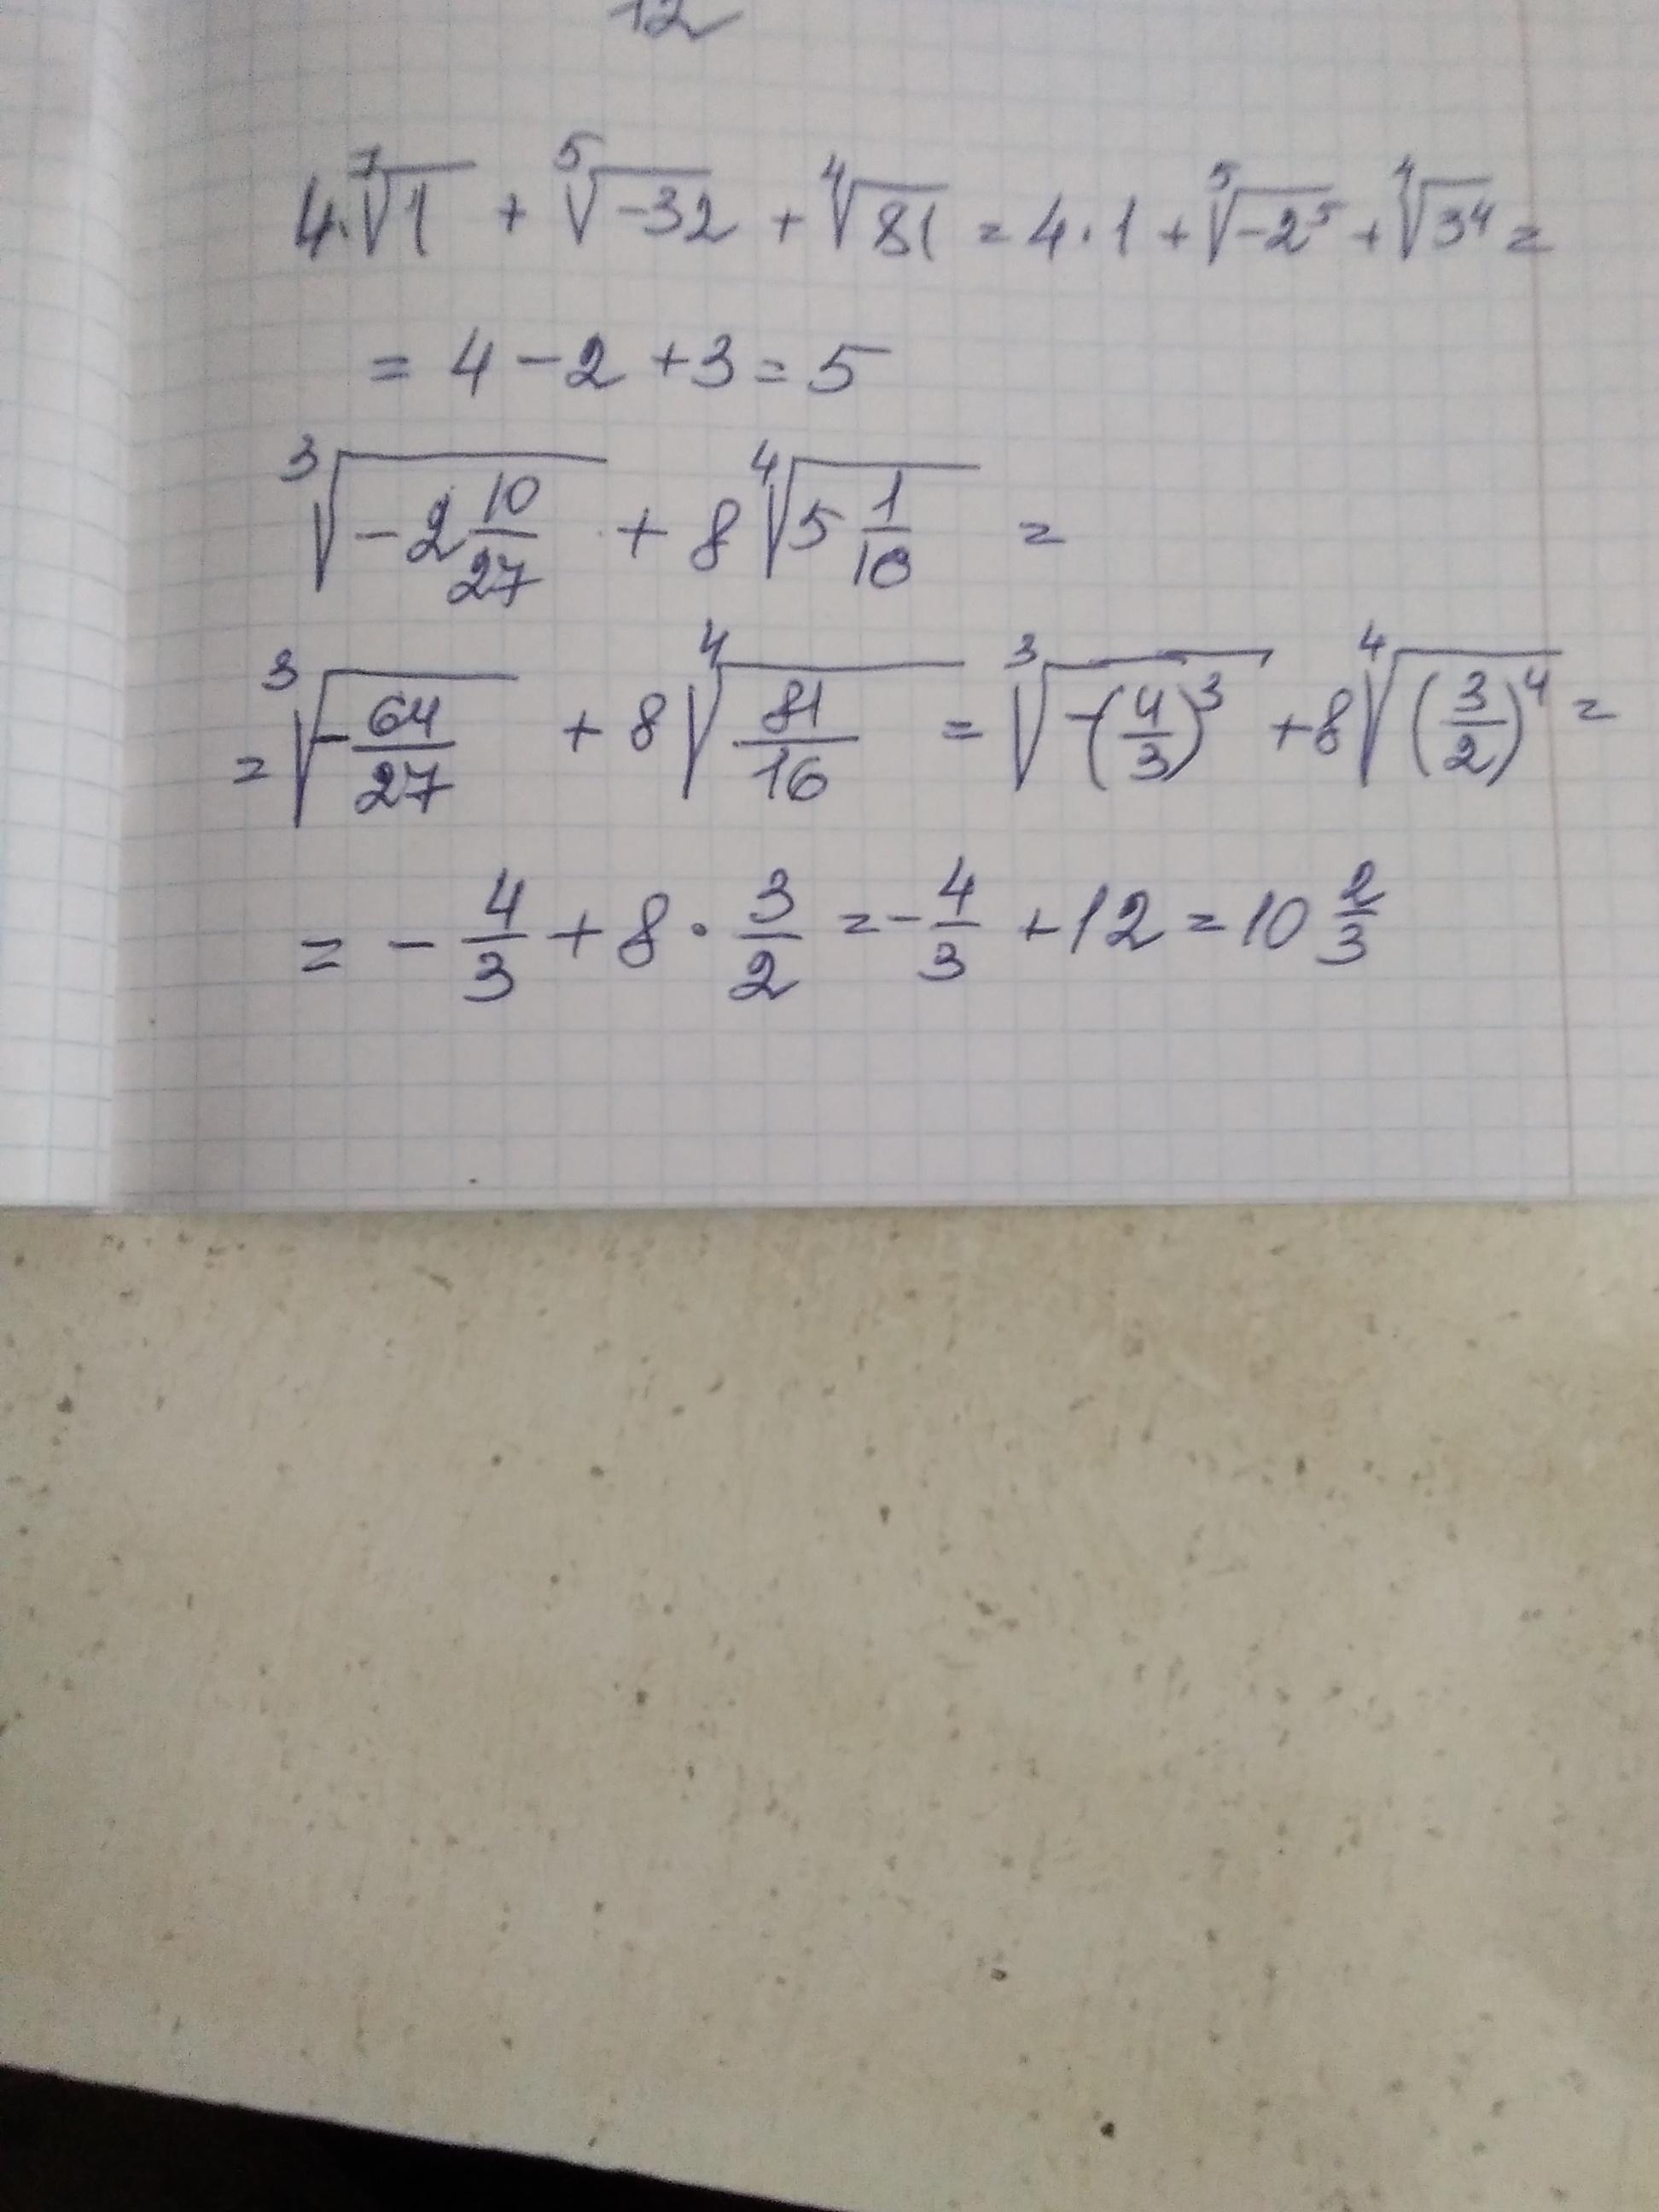 12
4·⁷√1 + ⁵√-32 + ⁴√81 = 4·1 + ⁵√-2⁵ + ⁴√3⁴ =
= 4 - 2 + 3 = 5
³√(-2 10/27) + 8 ⁴√(5 1/16) =
= ³√(-64/27) + 8 ⁴√(81/16) = ³√(-(4/3)³) + 8 ⁴√((3/2)⁴) =
= - 4/3 + 8 · 3/2 = - 4/3 + 12 = 10 2/3